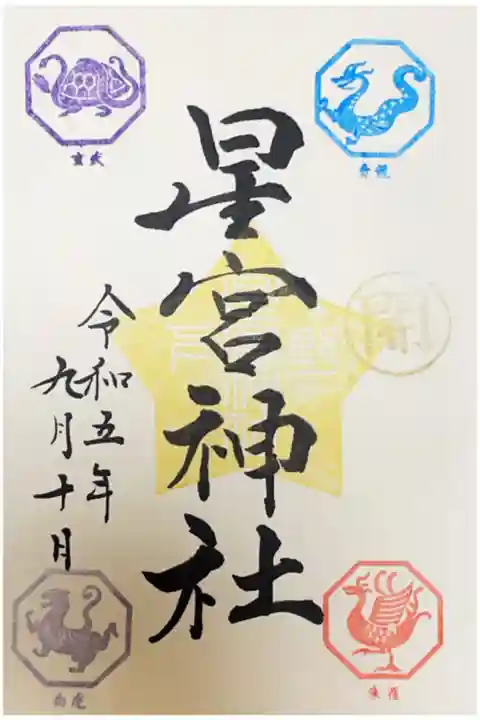 青龍
開
朱雀
星宮神社
令和五年
九月十月
玄武
白虎